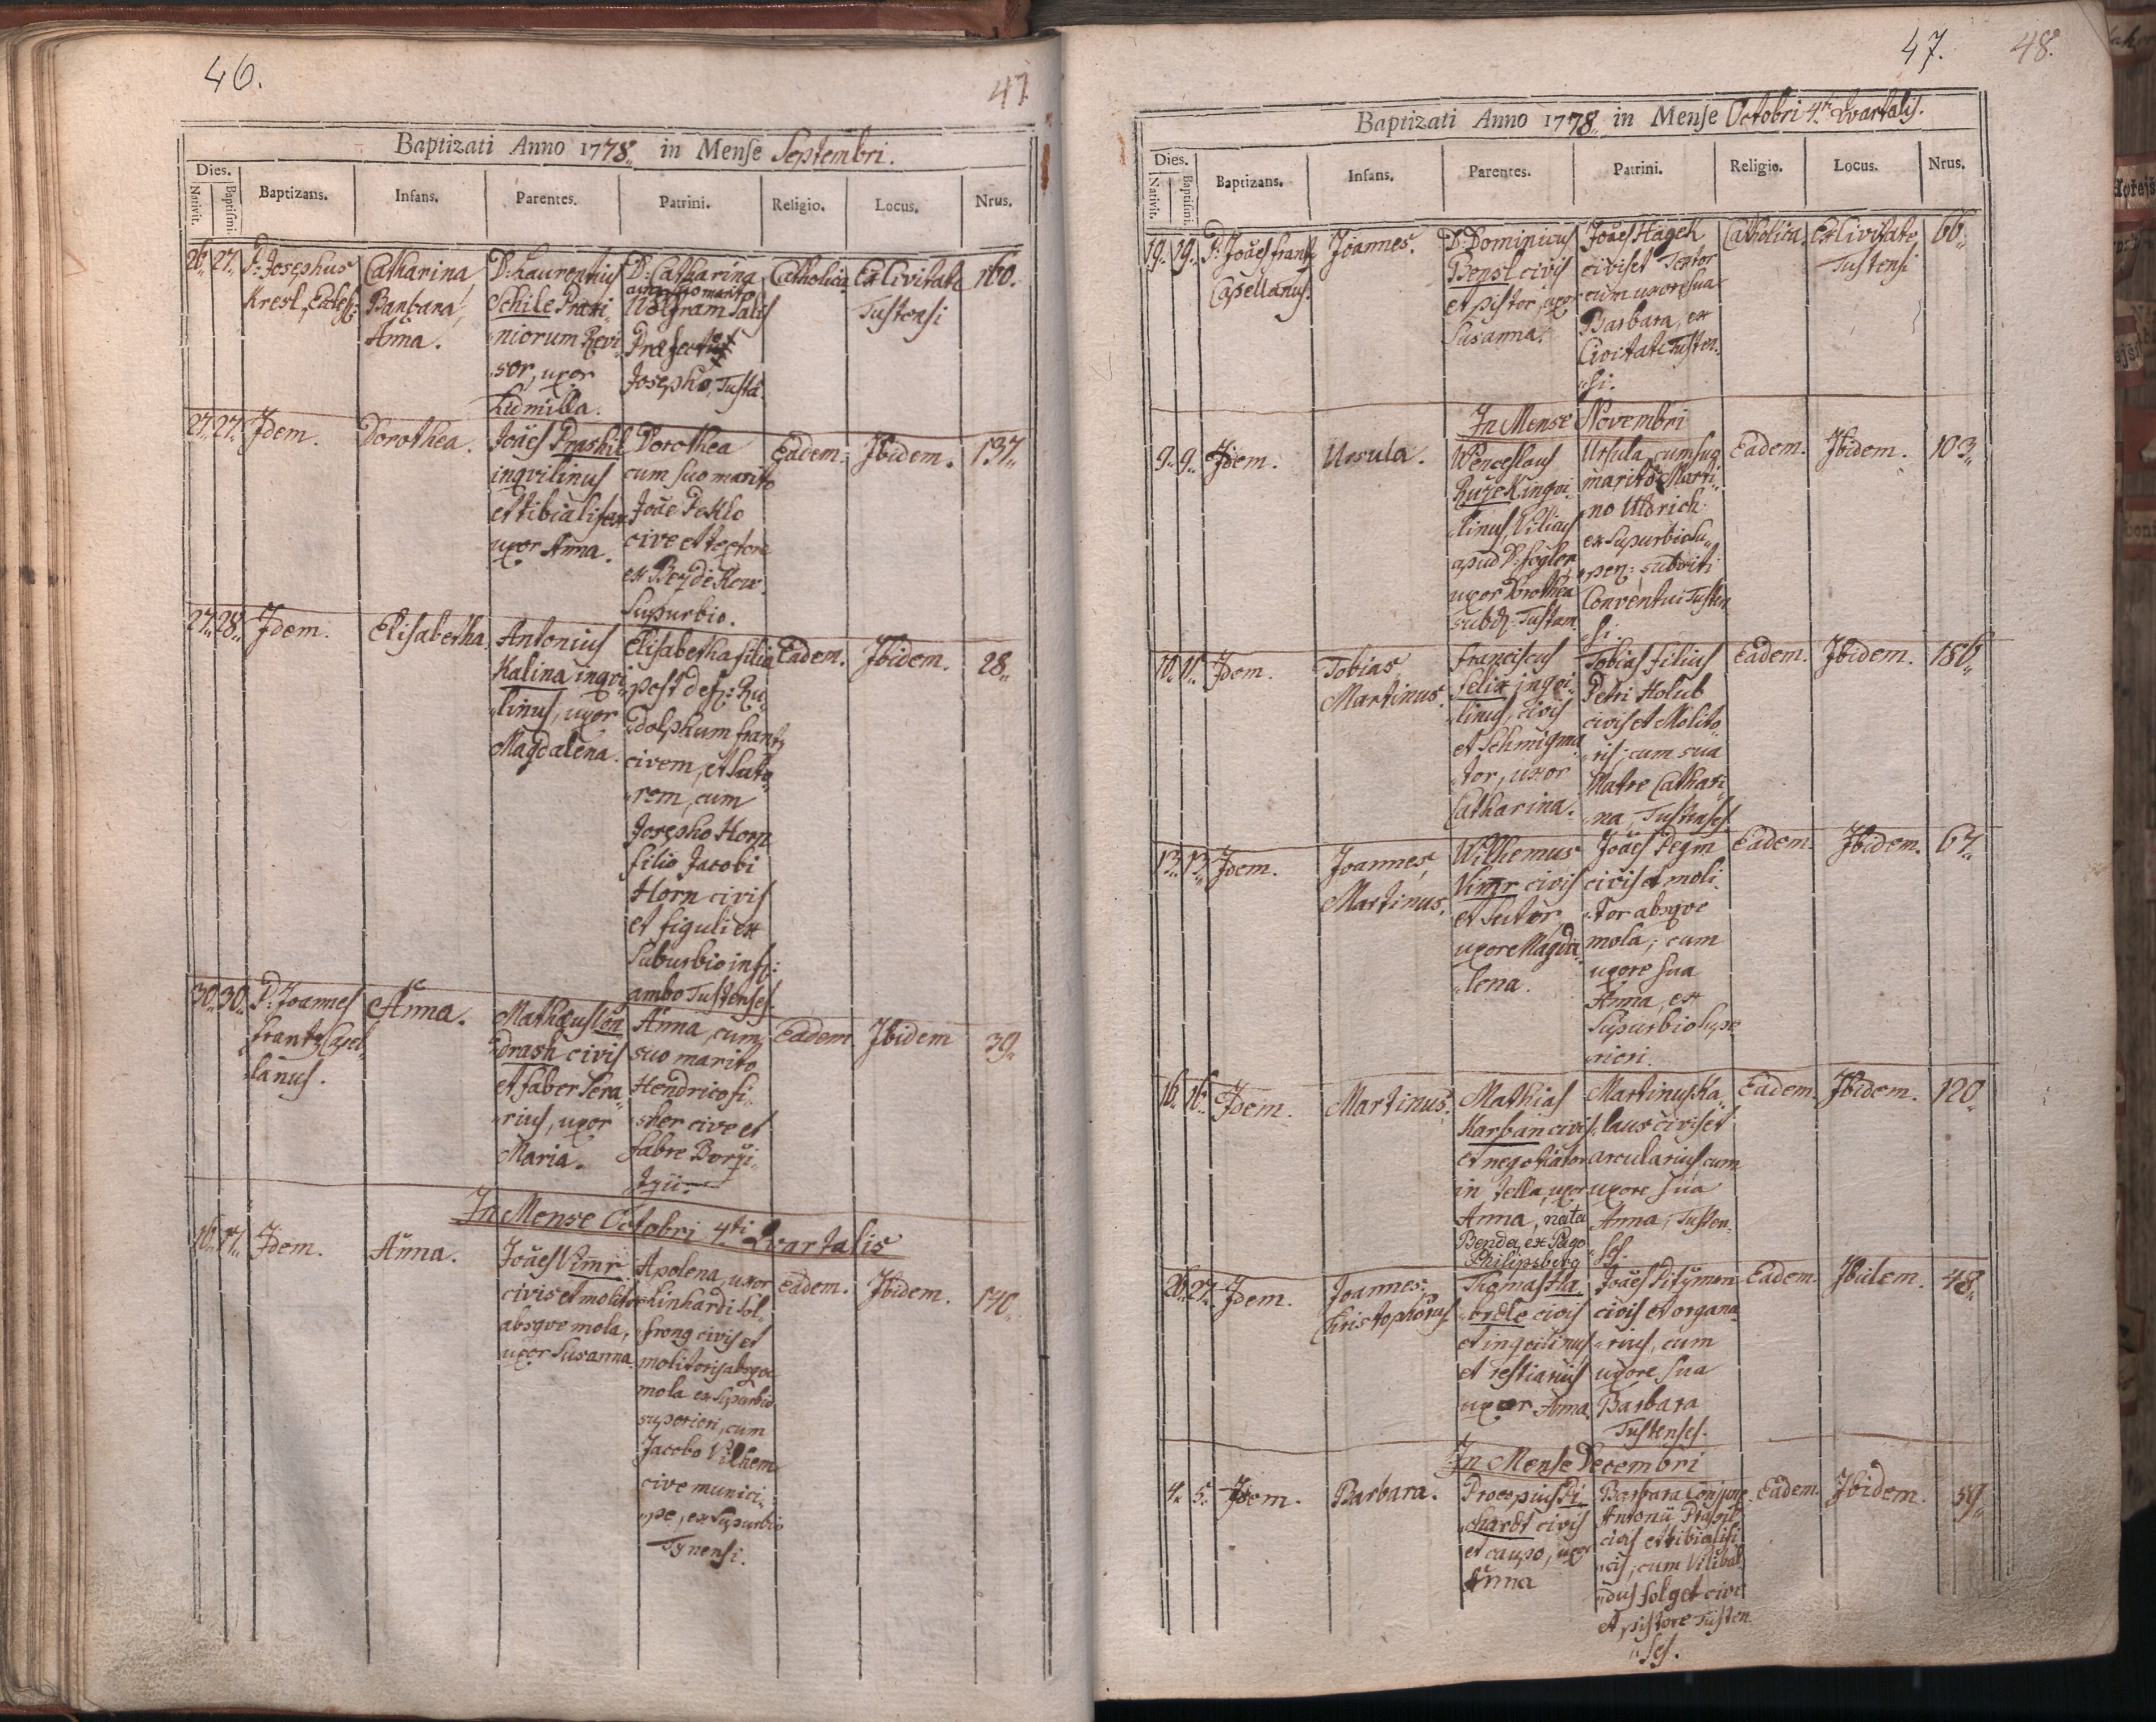 46.
47
Baptizati Anno 1778. in Mense Septembri.
Dies.
Nativit.
Baptismi.
Baptizans.
Infans.
Parentes.
Patrini.
Religio.
Locus.
Nrus.
26. 27. P: Josephus
Kresl, Eccles:
Catharina,
Barbara,
Anna.
D: Laurentius
Schile
niorum Revi
sor, uxor
Ludmilla.
D: Catharina
cum suo marito
Wolfram Salis
Josepho, Tustā.
Catholica
Ex Civitate
Tustensi
160.
27. 27. Idem.
Dorothea.
Joāes Praskil
inqvilinus
et tibialifex
uxor Anna.
Dorothea
cum suo marito
Joāe Peklo
cive et textore
ex
Supurbio.
Eadem.
Ibidem.
137.
27. 28. Idem.
Elisabetha
Antonius
Kalina inqvi
linus, uxor
Magdalena.
Elisabetha filia
post def: Ru
dolphum frantz
civem, et Suto
rem, cum
Josepho Horn
filio Jacobi
Horn civis
et figuli ex
Suburbio inf:
ambo Tustenses.
Eadem.
Ibidem.
28.
30. 30. P: Joannes
frantz Capel
lanus.
Anna.
Mathæus
drash civis
et faber Sera
rius, uxor
Maria.
Anna, cum
suo marito
Hendrico fi
sher cive et
fabre
Eadem
Ibidem
39.
In Mense Octobri 4ti Qvartalis
16. 17. Idem.
Anna.
Joāes Vimr
civis et molitor
absqve mola,
uxor Susanna.
Apolena, uxor
Linhardi Sol
frong civis et
molitoris absqve
mola ex Supurbio
superiori, cum
Jacobo Vilhem
cive munici
pe, ex Supurbio
Tynensi.
eadem.
Ibidem.
170.
47.
48.
Baptizati Anno 1778. in Mense Octobri 4ti Qvartalis.
Dies.
Nativit.
Baptismi.
Baptizans.
Infans.
Parentes.
Patrini.
Religio.
Locus.
Nrus.
19. 19. P: Joāes frantz
Capellanus.
Joannes.
D: Dominicus
Bensl civis
et pistor, uxor
Susanna.
Joāes Hagek
civis et Textor
cum uxore sua
Barbara, ex
Civitate Tusten
si.
Catholica
Ex Civitate
Tustensi
66.
In Mense Novembri
9. 9. Idem.
Ursula.
Wenceslaus
Ružek inqvi
linus,
apud D: fogler
uxor Dorothea
Ursula, cum suo
marito Marti
no Uldrich
ex Supurbio Su
per: subditi
Conventui Tusten
si.
Eadem.
Ibidem.
103.
10. 11. Idem.
Tobias
Martinus.
franciscus
felix inqvi
linus, civis
tor, uxor
Catharina.
Tobias filius
Petri Holub
civis et Molito
ris, cum sua
Matre Cathari
na, Tustenses.
Eadem.
Ibidem.
186.
13. 13. Idem.
Joannes
Martinus.
Wilhemus
Vimr civis
et Sutor
uxore Magda
lena.
Joāes Pegm
civis et moli
tor absqve
mola, cum
uxore sua
Anna, ex
Supurbio Supe
riori.
Eadem.
Ibidem.
67.
16. 16. Idem.
Martinus.
Mathias
Karban civis
et negotiator
in Tella, uxor
Anna, nata
Benda, ex Pago
Philipsberg
Martinus Ka
laus civis et
arcularius, cum
uxore sua
Anna, Tusten
ses.
Eadem.
Ibidem.
120.
26. 27. Idem.
Joannes
Christophorus
Thomas Ha
berle civis
et inqvilinus
et restiarius
uxor Anna.
Joāes Pitymon
civis et organa
rius, cum
uxore sua
Barbara
Tustenses.
Eadem.
Ibidem.
48.
In Mense Decembri
4. 5. Idem.
Barbara.
Procopius Pi
chardt civis
et caupo, uxor
Anna
Barbara Conjunx
Antonii Praskil
civis et tibialifi
cis, cum Vilibal
dus folget cive
et pistore Tusten
ses.
Eadem.
Ibidem.
59.